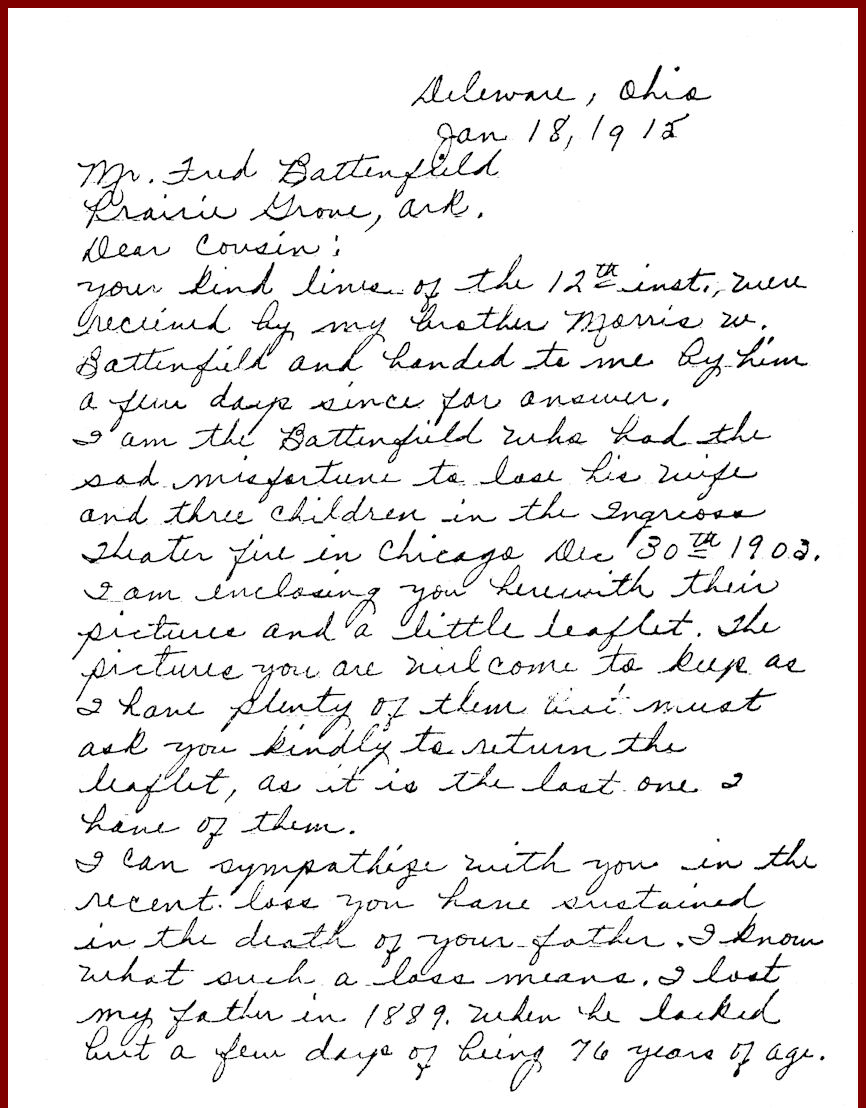 Deleware, Ohio
Jan 18, 1912
Mr. Fred Battenfield
Prairie Grove, Ark.
Dear Cousin:
Your kind lines of the 12th inst., were
received by my brother Morris W.
Battenfield and handed to me by him
a few days since for answer.
I am the Battenfield who had the
sad misfortune to lose his wife
and three children in the
Theater fire in Chicago Dec 30th 1903.
I am enclosing you herewith their
pictures and a little leaflet. The
pictures you are welcome to keep as
I have plenty of them but must
ask you kindly to return the
leaflet, as it is the last one I
have of them.
I can sympathize with you in the
recent loss you have sustained
in the death of your father. I know
what such a loss means. I lost
my father in 1889. When he lacked
but a few days of being 76 years of age.